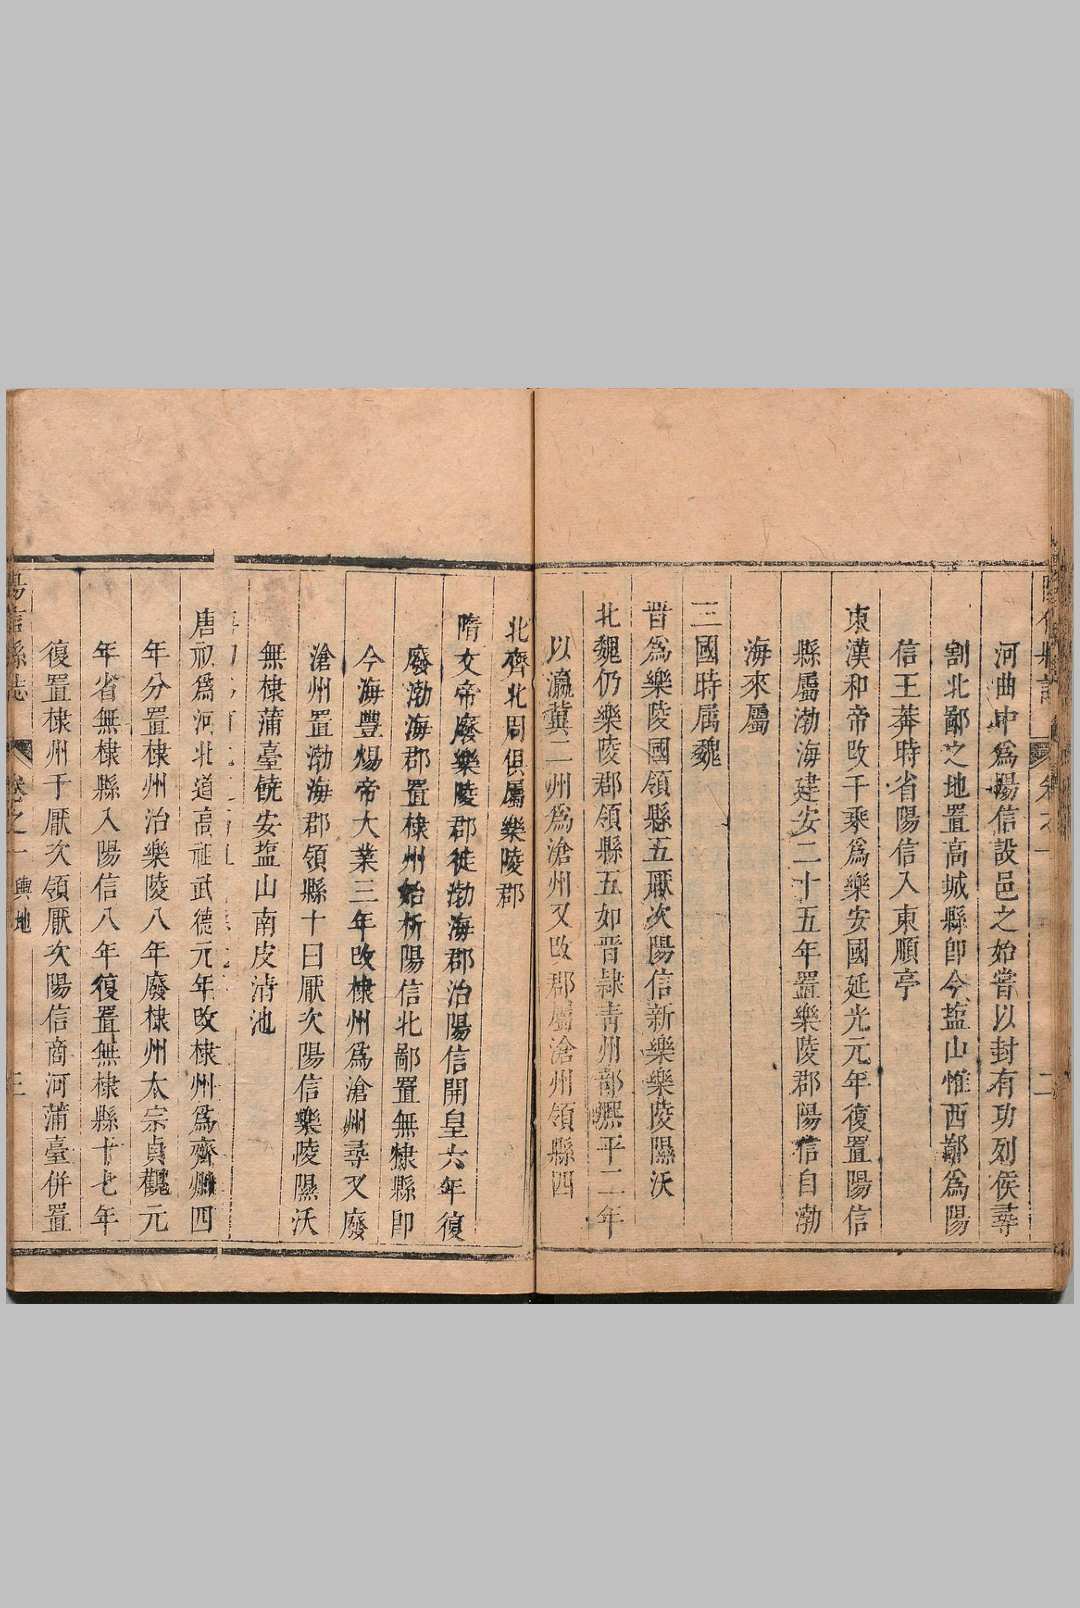 河曲中爲陽信設邑之始嘗以封有功列侯尋
割北鄙之地置高城縣卽今塩山惟西鄰爲陽
信王莽時省陽信入東順亭
東漢和帝改千乘爲樂安國延光元年復置陽信
縣屬渤海建安二十五年置樂陵郡陽信自渤
海來屬
三國時属魏
晋爲樂陵國領縣五厭次陽信新樂樂陵隰沃
北魏仍樂陵郡領縣五如晋隷青州部熈平二年
以瀛冀二州爲滄州又改郡屬滄州領縣四
北齊北周俱屬樂陵郡
隋文帝廢樂陵郡徒渤海郡治陽信開皇六年復
廢渤海郡置棣州始析陽信北鄙置無棣縣卽
今海豐煬帝大業三年改棣州爲滄州尋又廢
滄州置渤海郡領縣十曰厭次陽信樂陵隰沃
無棣蒲臺饒安塩山南皮清池
唐初爲河北道高祖武德元年改棣州爲齊州四
年分置棣州治樂陵八年廢棣州太宗貞觀元
年省無棣縣入陽信八年復置無棣縣十七年
復置棣州于厭次領厭次陽信商河蒲臺併置
陽信縣志 卷之一 輿地 三